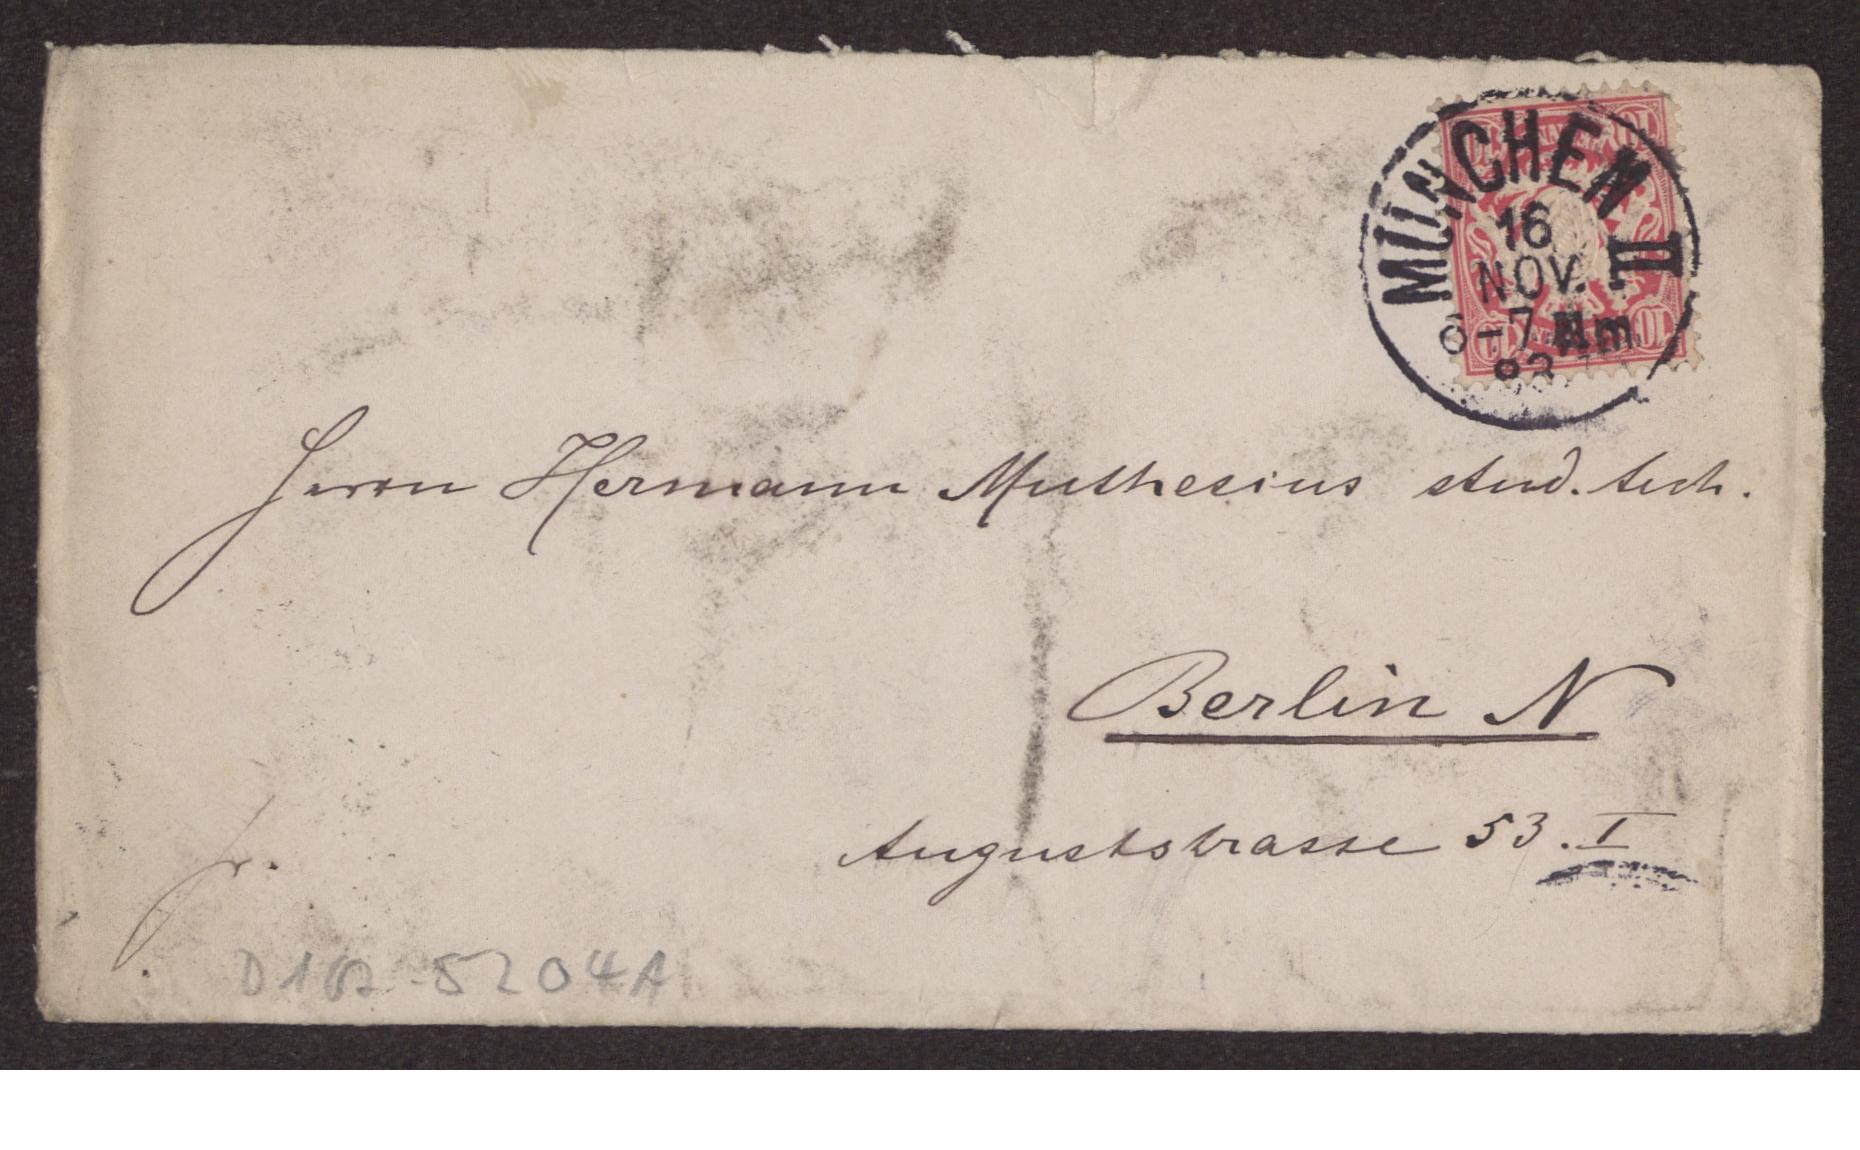 MÜNCHEN II
16
NOV.
6-7 Nm.
83
Herrn Hermann Muthesius stud. tech.
Berlin N
Auguststrasse 53. I
fr.
D102-5204A